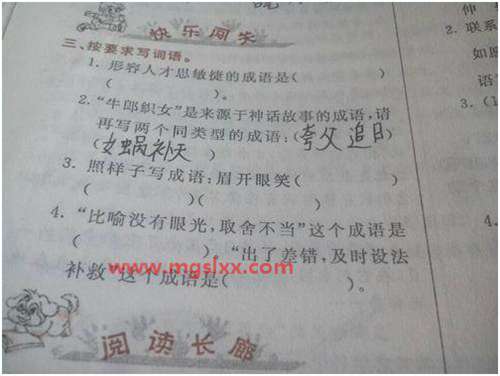 快乐闯关
三、按要求写词语。
1. 形容人才思敏捷的成语是(          )
(          )。
2. “牛郎织女”是来源于神话故事的成语,请
再写两个同类型的成语:(夸父 追日)
(女娲补天)
3. 照样子写成语:眉开眼笑(          )
(          )(          )
4. “比喻没有眼光,取舍不当”这个成语是
(          ) “出了差错,及时设法
补救”这个成语是(          )。
www.mgslxx.com
阅读长廊
伸
2. 联系
如
3.